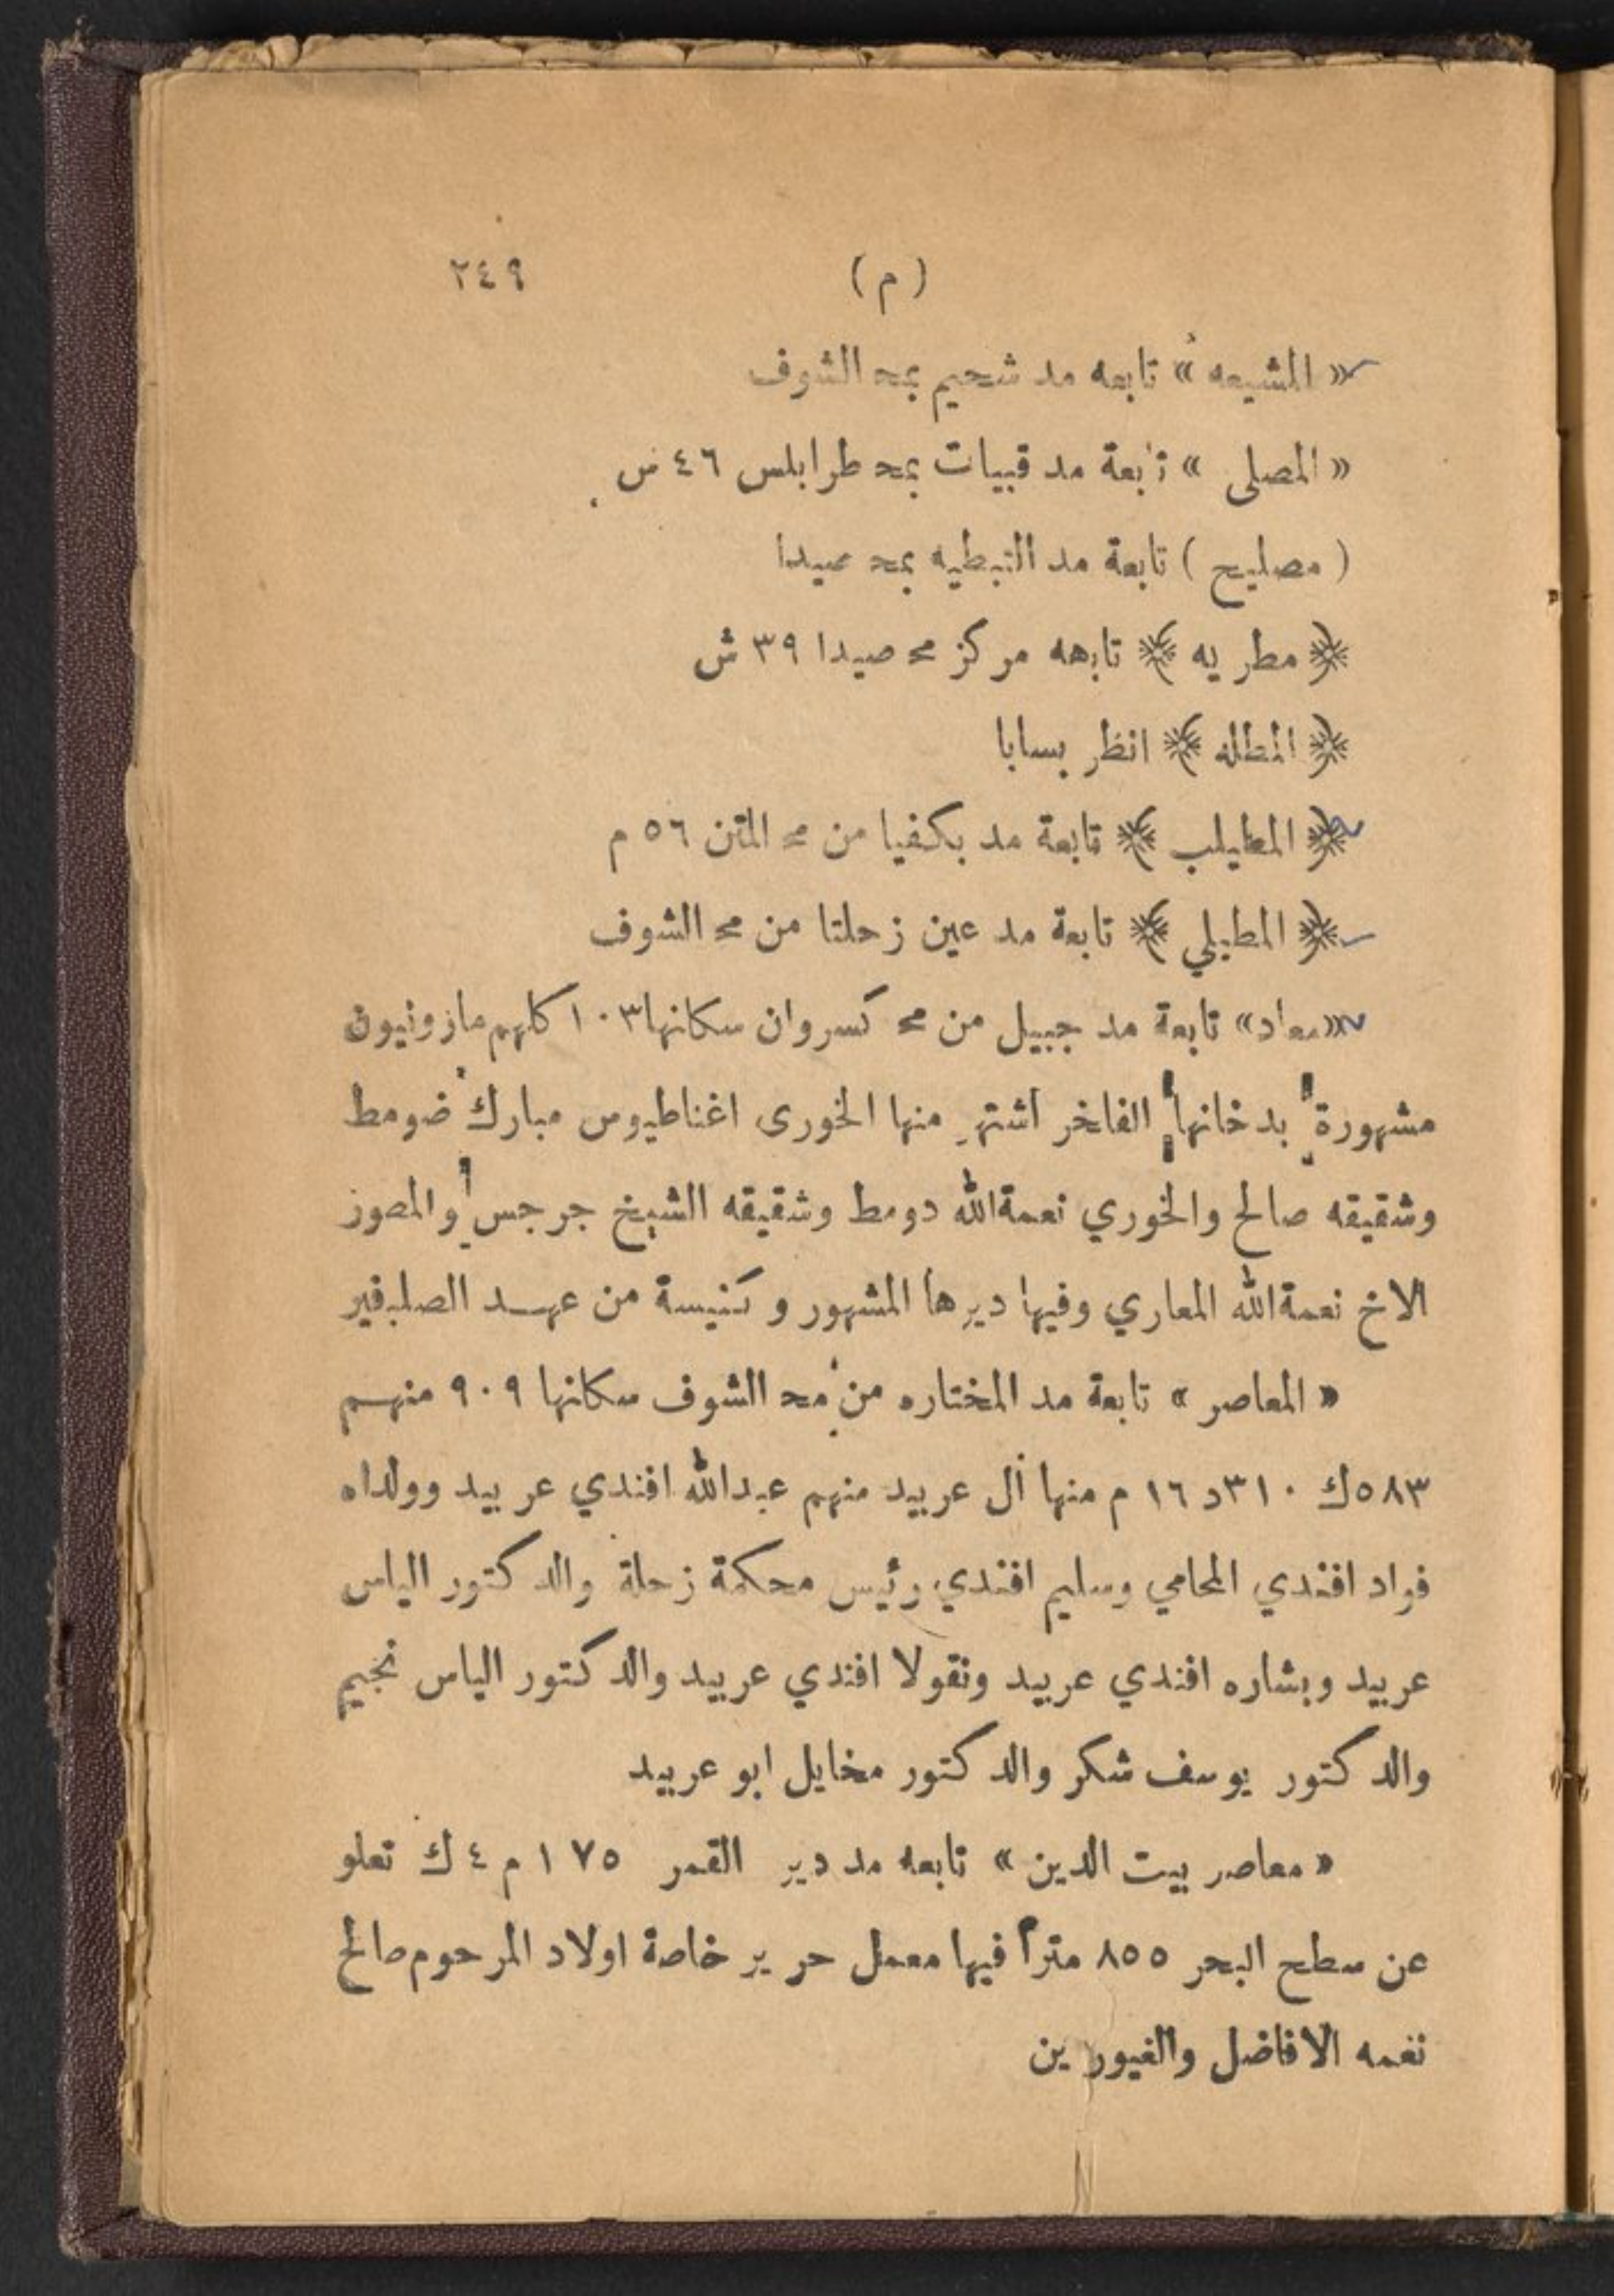 (م) ٢٤٩
« المشيعه » تابعه مد شحيم بمحـ الشوف
« المصلى » تابعة مد قبيات بمحـ طرابلس ٤٦ س
( مصليح ) تابعة مد النبطيه بمحـ صيدا
﴿ مطريه ﴾ تابعه مركز محـ صيدا ٣٩ ش
﴿ المطله ﴾ انظر بسابا
﴿ المطيلب ﴾ تابعة مد بكفيا من محـ المتن ٥٦ م
﴿ المطيلي ﴾ تابعة مد عين زحلتا من محـ الشوف
«معاد» تابعة مد جبيل من محـ كسروان سكانها ١٠٣ كلهم مارونيون
مشهورة بدخانها الفاخر اشتهر منها الخورى اغناطيوس مبارك ضومط
وشقيقه صالح والخوري نعمةالله دومط وشقيقه الشيخ جرجس والمصور
الاخ نعمةالله المعاري وفيها ديرها المشهور وكنيسة من عهد الصلبقير
« المعاصر » تابعة مد المختاره من محـ الشوف سكانها ٩٠٩ منهم
٥٨٣ك ٣١٠د ١٦ م منها آل عربيد منهم عبدالله افندي عربيد وولداه
فواد افندي المحامي وسليم افندي رئيس محكمة زحلة والدكتور الياس
عربيد وبشاره افندي عربيد ونقولا افندي عربيد والدكتور الياس نجيم
والدكتور يوسف شكر والدكتور مخايل ابو عربيد
« معاصر بيت الدين » تابعه مد دير القمر ١٧٥ م ٤ ك تعلو
عن سطح البحر ٨٥٥ متراً فيها معمل حرير خاصة اولاد المرحوم صالح
نعمه الافاضل والغيورين